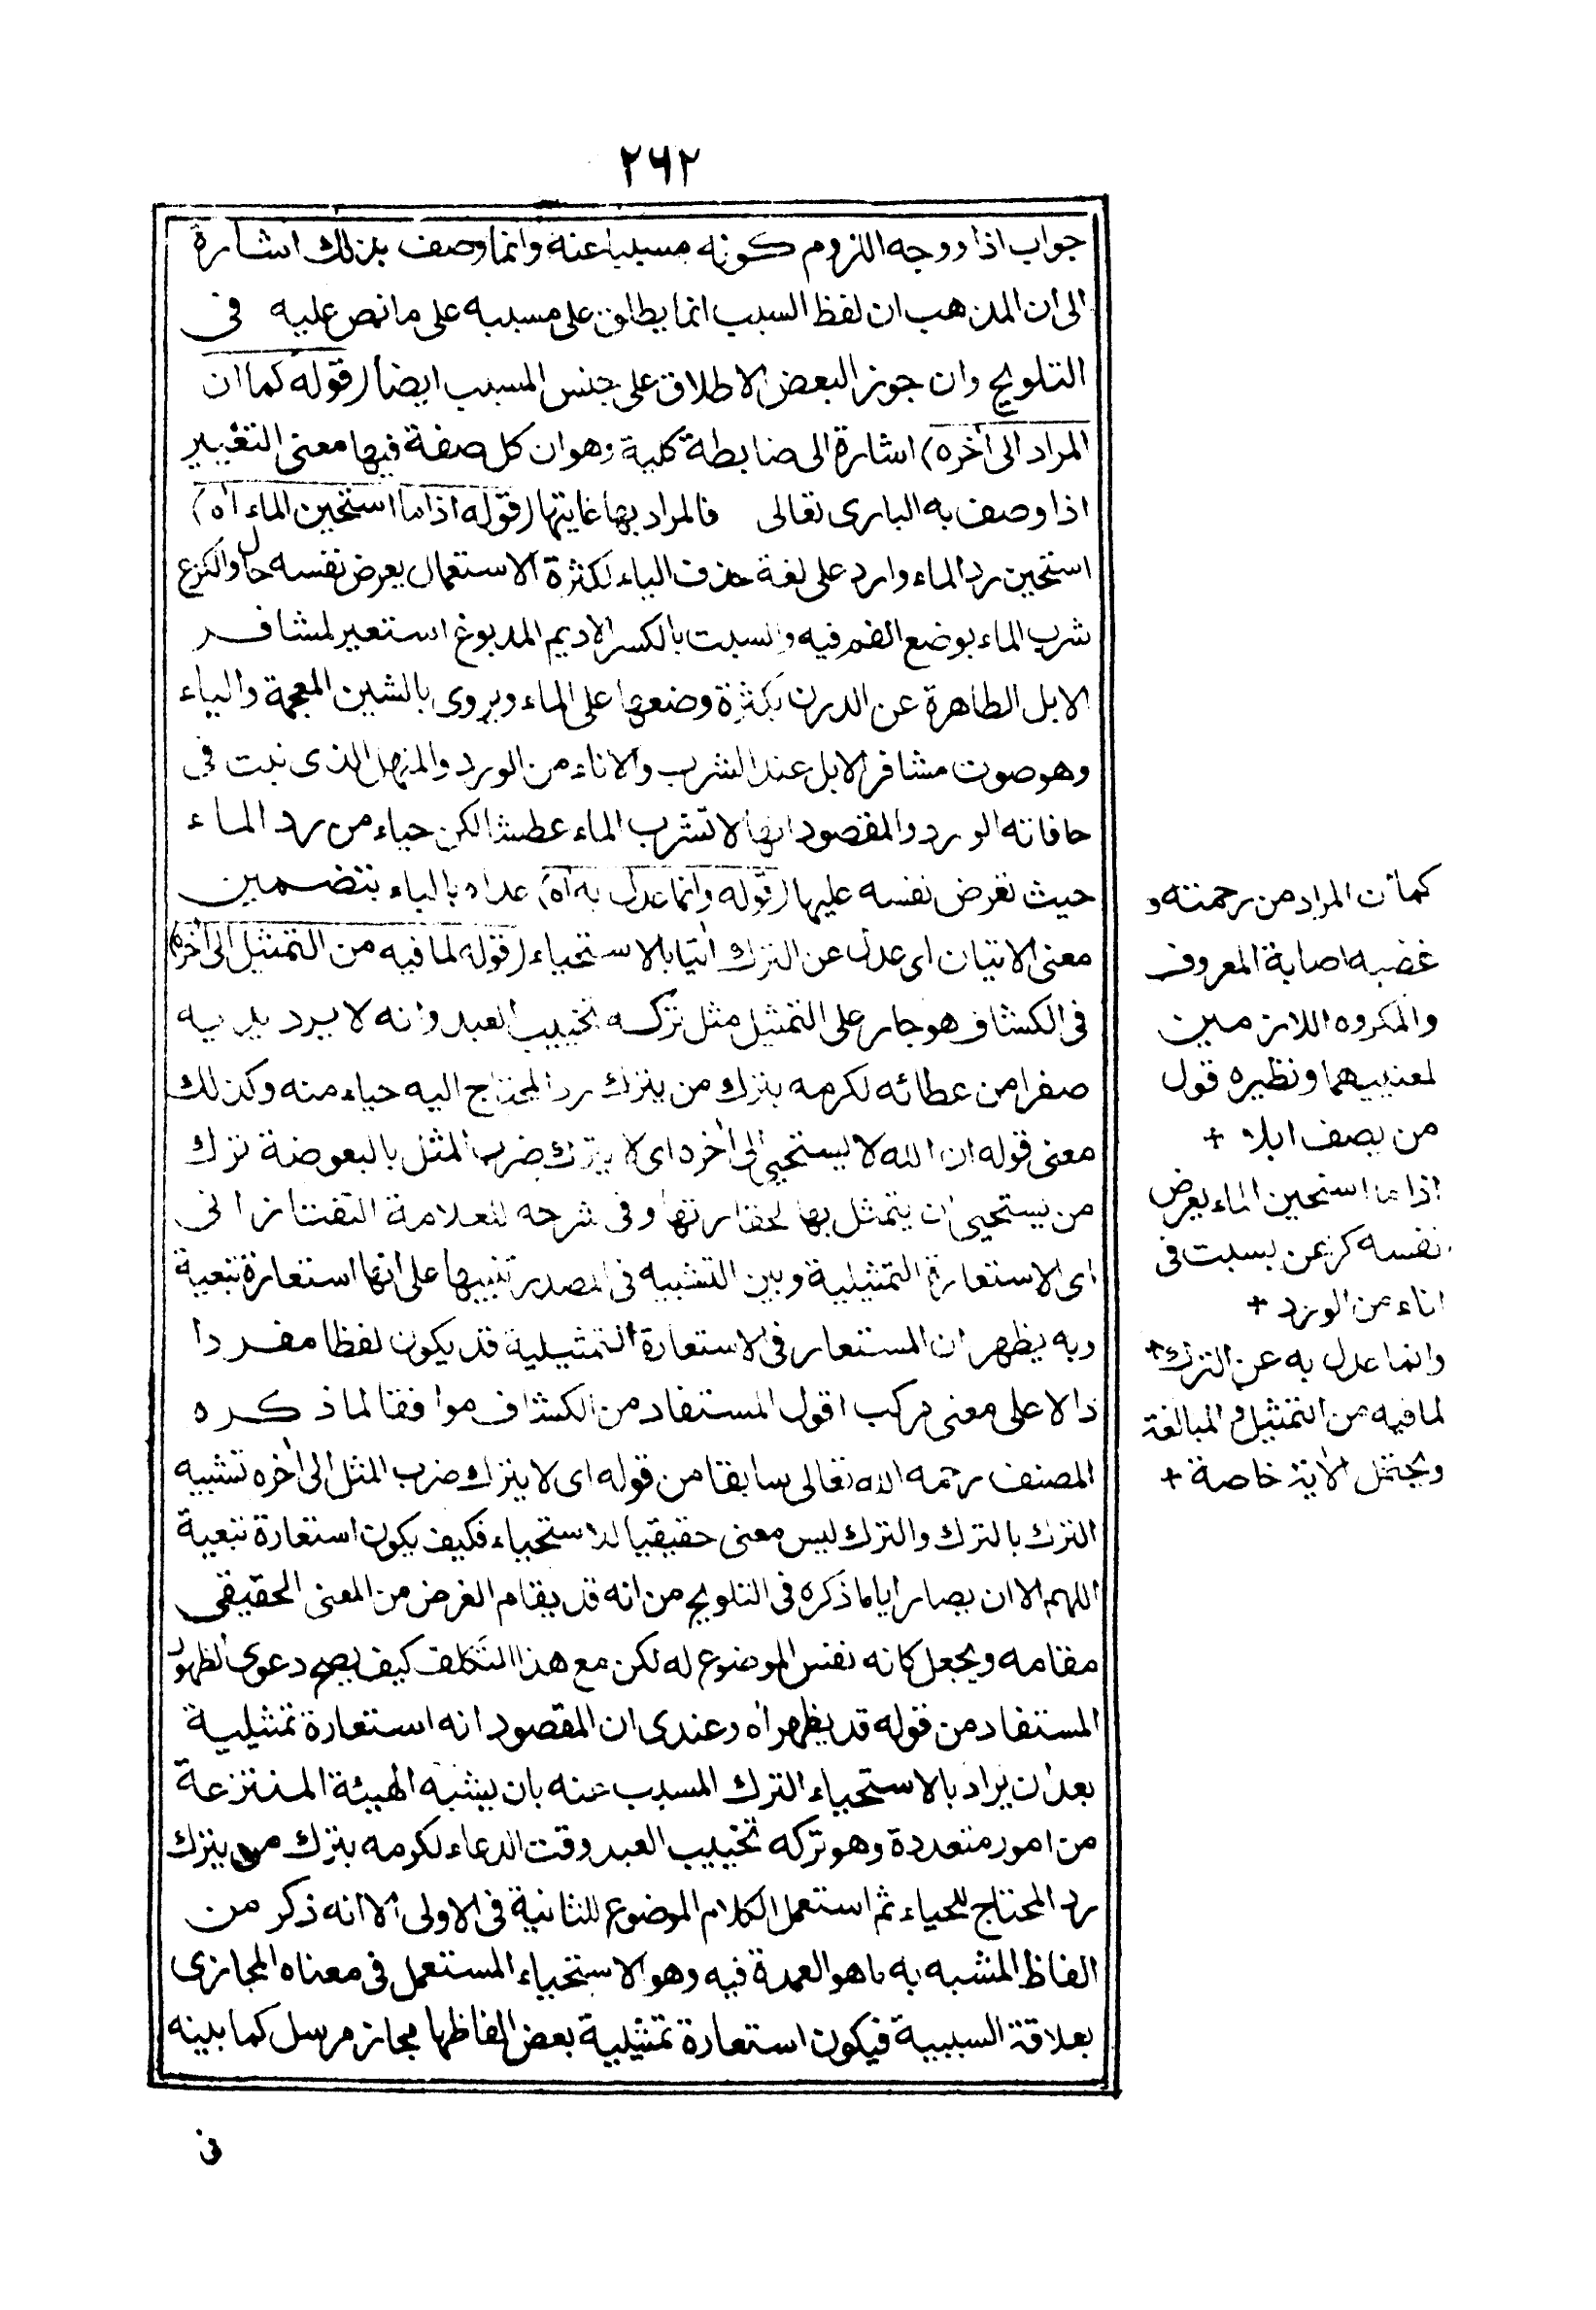 ٢٦٢
جواب اذا ووجه اللزوم كونه مسببا عنه وانما وصف بذلك اشارة
الى ان المذهب ان لفظ السبب انما يطلق على مسببه على ما نص عليه فى
التلويح وان جوز البعض الاطلاق على جنس المسبب ايضا (قوله كما ان
المراد الى اٰخره) اشارة الى ضابطة كلية وهو ان كل صفة فيها معنى التغيير
اذا وصف به البارى تعالى فالمراد بها غايتها (قوله اذا ما استحين الماء اه)
استحين رد الماء وارد على لغة حذف الياء لكثرة الاستعمال يعرض نفسه حال والكرع
شرب الماء بوضع الفم فيه والسبت بالكسر الاديم المدبوغ استعير لمشافر
الابل الطاهرة عن الدرن بكثرة وضعها على الماء ويروى بالشين المعجمة والياء
وهو صوت مشافر الابل عند الشرب والاناء من الورد والمنهل الذى نبت فى
حافاته الورد والمقصود انها لا تشرب الماء عطشا لكن حياء من رد الماء
حيث تعرض نفسه عليها (قوله وانما عدل به اه) عداه بالباء بتضمين
معنى الاتيان اى عدل عن الترك اٰتيا بالاستحياء (قوله لما فيه من التمثيل الى اٰخره)
فى الكشاف هو جار على التمثيل مثل تركه تخييب العبد وانه لا يرد يديه
صفرا من عطائه لكرمه بترك من يترك رد المحتاج اليه حياء منه وكذلك
معنى قوله ان الله لا يستحيى الى اٰخره اى لا يترك ضرب المثل بالبعوضة ترك
من يستحيى ان يتمثل بها لحقارتها وفى شرحه للعلامة التفتازانى
اى الاستعارة التمثيلية وبين التشبيه فى المصدر تنبيها على انها استعارة تبعية
وبه يظهر ان المستعار فى الاستعارة التمثيلية قد يكون لفظا مفردا
دالا على معنى مركب اقول المستفاد من الكشاف موافقا لما ذكره
المصنف رحمه الله تعالى سابقا من قوله اى لا يترك ضرب المثل الى اٰخره تشبيه
الترك بالترك والترك ليس معنى حقيقيا للاستحياء فكيف يكون استعارة تبعية
اللهم الا ان يصار ايا ما ذكره فى التلويح من انه قد يقام الغرض من المعنى الحقيقى
مقامه ويجعل كانه نفس الموضوع له لكن مع هذا التكلف كيف يصح دعوى الظهور
المستفاد من قوله قد يظهر اه وعندى ان المقصود انه استعارة تمثيلية
بعد ان يراد بالاستحياء الترك المسبب عنه بان يشبه الهيئة المنتزعة
من امور متعددة وهو تركه تخييب العبد وقت الدعاء لكرمه بترك من يترك
رد المحتاج للحياء ثم استعمل الكلام الموضوع للثانية فى الاولى الا انه ذكر من
الفاظ المشبه به ما هو العمدة فيه وهو الاستحياء المستعمل فى معناه المجازى
بعلاقة السببية فيكون استعارة تمثيلية بعض الفاظها مجاز مرسل كما بينه
فى
كما ان المراد من رحمته و
غضبه اصابة المعروف
والمكروه اللازمين
لمعنييهما ونظيره قول
من يصف ابلا +
اذا ما استحين الماء يعرض
نفسه كرعن بسبت فى
اناء من الورد +
وانما عدل به عن الترك +
لما فيه من التمثيل والمبالغة
ويحتمل الاية خاصة +